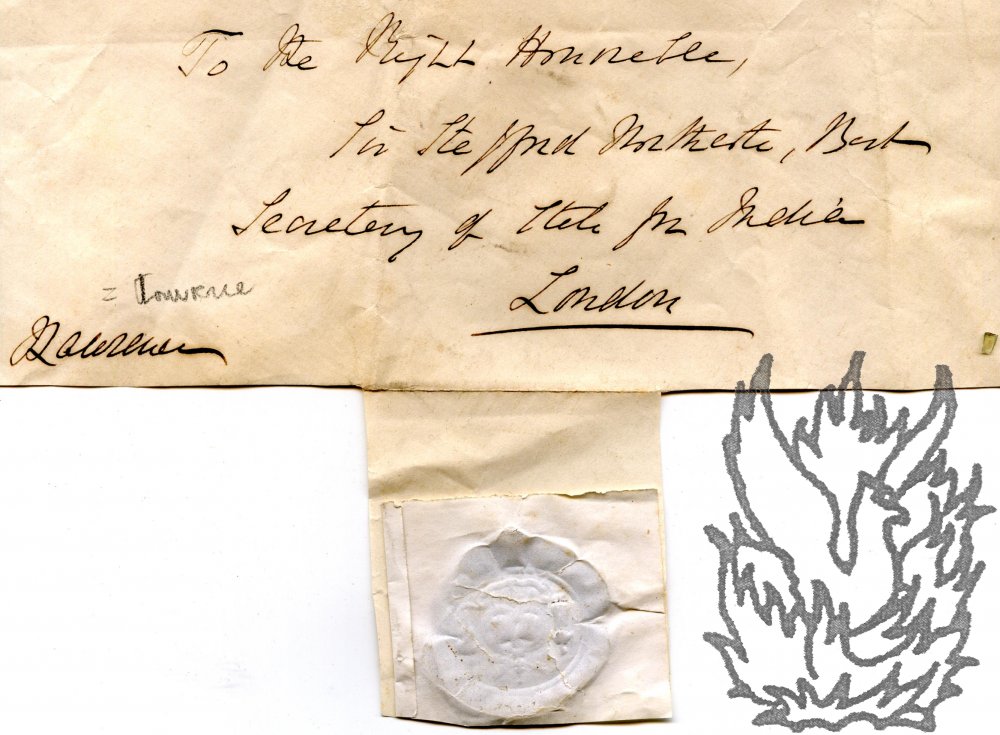 To the Right Honorable,
Sir Stafford Northcote, Bart
Secretary of State for India
London
= Lawrence
Lawrence